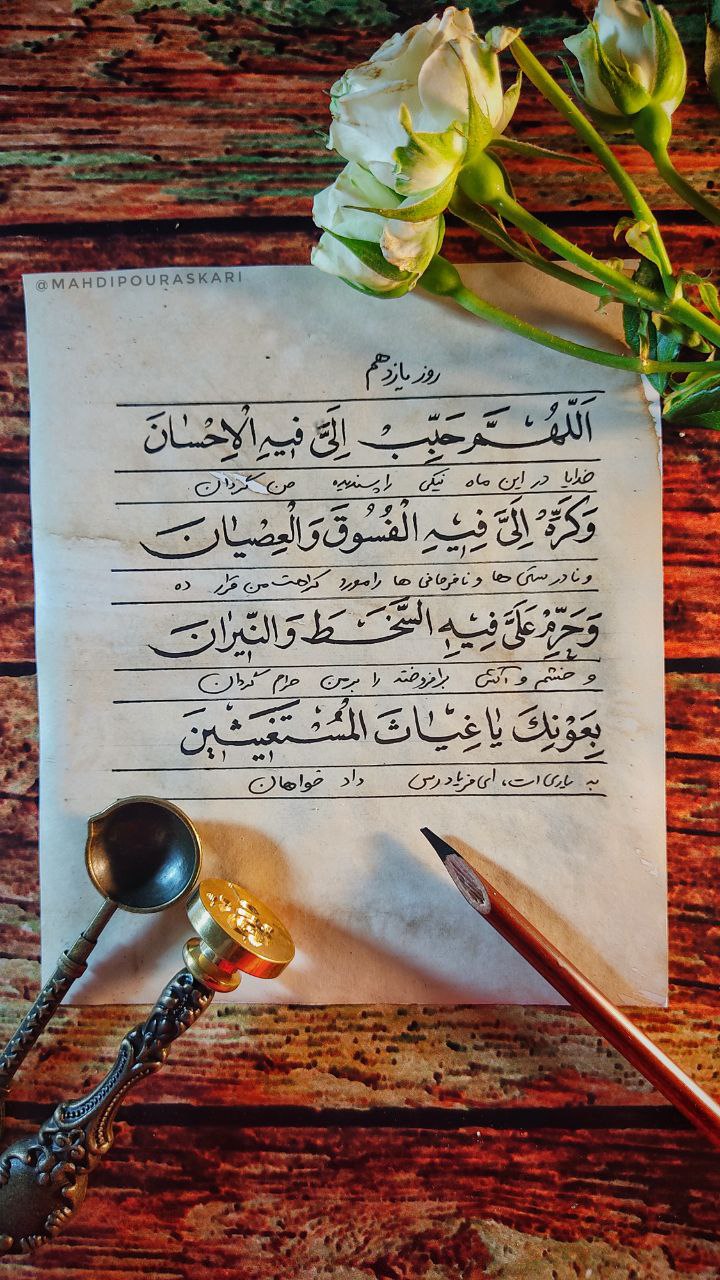 @MAHDIPOURASKARI
روز یازدهم
اَللّهُمَّ حَبِّبْ اِلَیَّ فیهِ الْاِحْسانَ
خدایا در این ماه نیکی را پسندیده من گردان
وَکَرِّهْ اِلَیَّ فیهِ الْفُسُوقَ وَالْعِصْیانَ
و نادرستی ها و نافرمانی ها را مورد کراهت من قرار ده
وَحَرِّمْ عَلَیَّ فیهِ السَّخَطَ وَالنّیرانَ
و خشم و آتش برافروخته را بر من حرام گردان
بِعَوْنِکَ یا غِیاثَ المُسْتَغیثینَ
به یاری ات، ای فریادرس داد خواهان